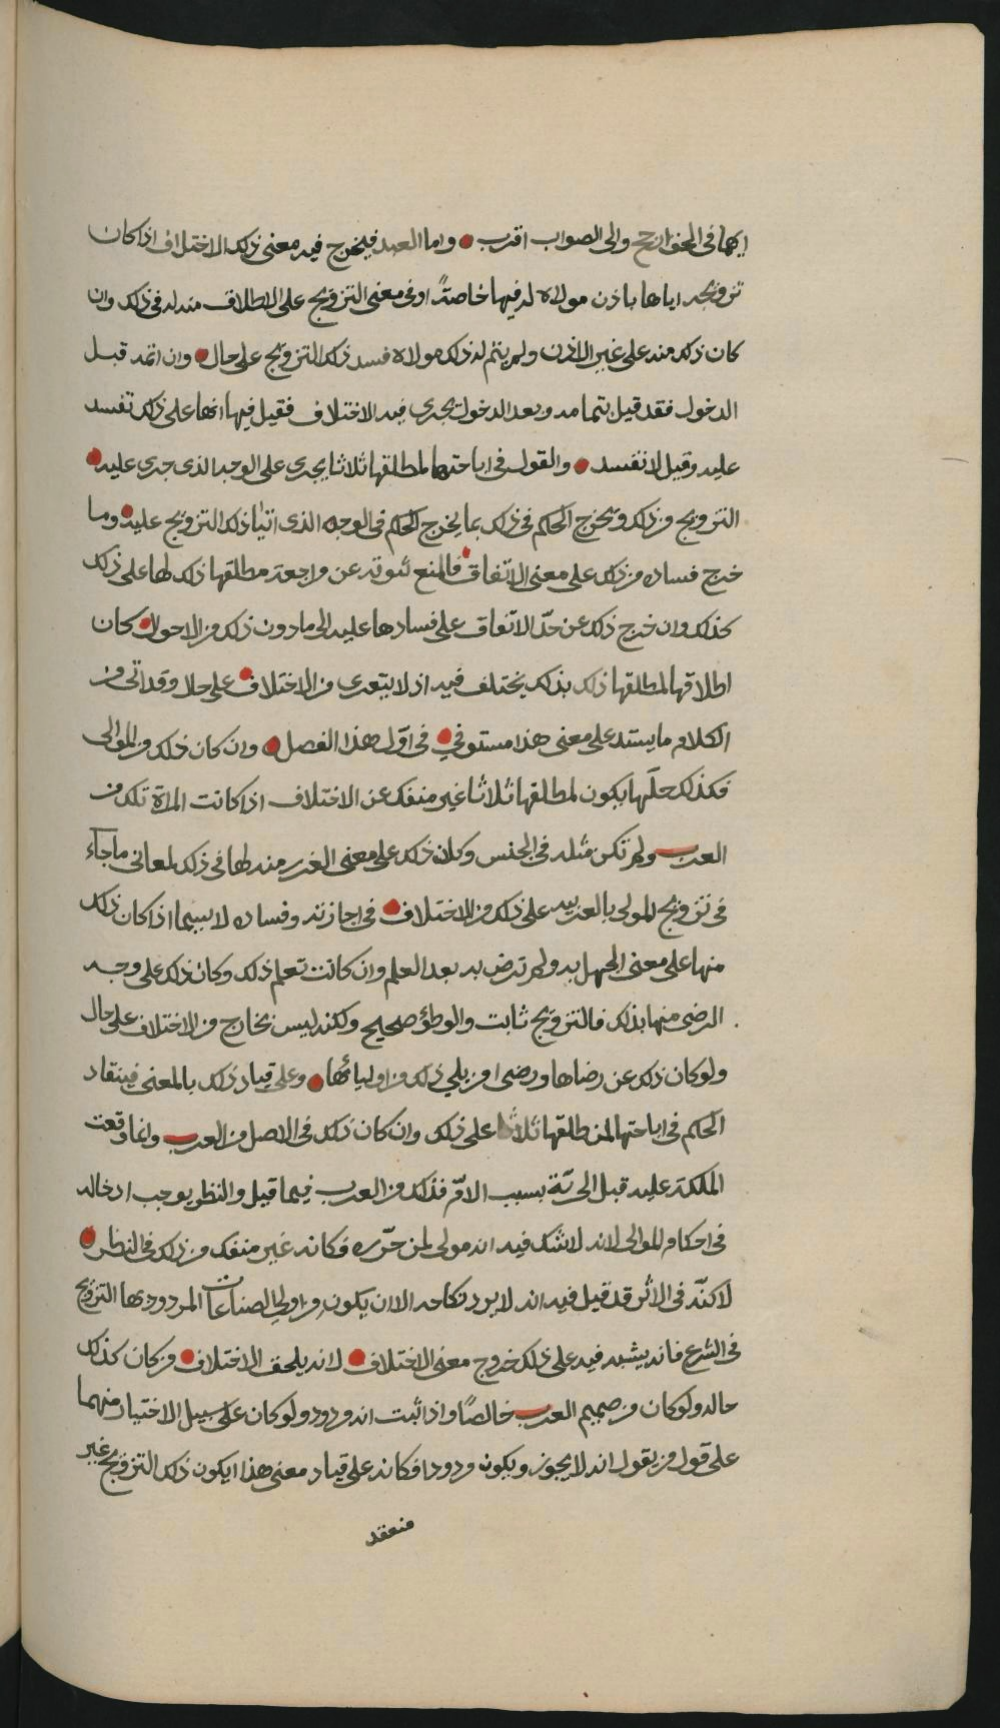 ايهما في الحق ارجح والى الصواب اقرب واما العبد فيخرج فيه معنى ذلك الاختلاف اذا كان
تزويجه اياها باذن مولاه له فيها خاصةً او في معنى التزويج على الاطلاق منه له في ذلك وان
كان ذلك منه على غير الاذن ولم يتم له ذلك مولاه فسد ذلك التزويج على حال وان اتمه قبل
الدخول فقد قيل بتمامه وبعد الدخول يجرى فيه الاختلاف فقيل فيها انها على ذلك تفسد
عليه وقيل لا تفسد والقول في اباحتها لمطلقها ثلاثا يجرى على الوجه الذى جرى عليه
التزويج من ذلك ويخرج الحكم في ذلك بما يخرج الحكم في الوجه الذى اتيا ذلك التزويج عليه وما
خرج فساده من ذلك على معنى الاتفاق فالمنع ثبوته عن مراجعة مطلقها ذلك لها على ذلك
كذلك وان خرج ذلك عن حدّ الاتفاق على فسادها عليه الى ما دون ذلك من الاحوال كان
اطلاقها لمطلقها ذلك بذلك يختلف فيه اذ لا يتعرى من الاختلاف على حال وقد اتى من
الكلام ما يستدل على معنى هذا مستوفي في اوّل هذا الفصل وان كان ذلك من الموالى
فكذلك حلّها يكون لمطلقها ثلاثا غير منفك عن الاختلاف اذا كانت المراة تلك من
العرب ولم تكن مثله في الجنس وكان ذلك على معنى الغرر منه لها في ذلك لمعاني ما جاء
في تزويج المولى بالعربية على ذلك من الاختلاف في اجازته وفساده لا سيما اذا كان ذلك
منها على معنى الجهل به ولم ترض به بعد العلم وان كانت تعلم ذلك وكان ذلك على وجه
الرضى منها بذلك فالتزويج ثابت والوطؤ صحيح ولكنه ليس بخارج من الاختلاف على حال
ولو كان ذلك عن رضاها ورضى من يلي ذلك من اوليائها وعلى قياد ذلك بالمعنى فينقاد
الحكم في اباحتها لمن طلقها ثلاثا على ذلك وان كان ذلك في الاصل من العرب وانما وقعت
الملكة عليه قبل الحريّة بسبب الامّ فذلك من العرب فيما قيل والنظر يوجب ادخاله
في احكام الموالى لانه لا شك فيه انه مولى لمن حرّره فكانه غير منفك من ذلك في النظر
لاكنّه في الاثر قد قيل فيه انه لا يرد نكاحه الا ان يكون من اولى الصناعات المردود بها التزويج
في الشرع فانه يشبه فيه على ذلك خروج معنى الاختلاف لانه يلحق الاختلاف من كان كذلك
حاله ولو كان من صميم العرب خالصًا واذا ثبت انه مردود ولو كان على سبيل الاختيار منهما
على قول من يقول انه لا يجوز ويكون مردودا فكانه على قياد معنى هذا ايكون ذلك التزويج غير
منعقد